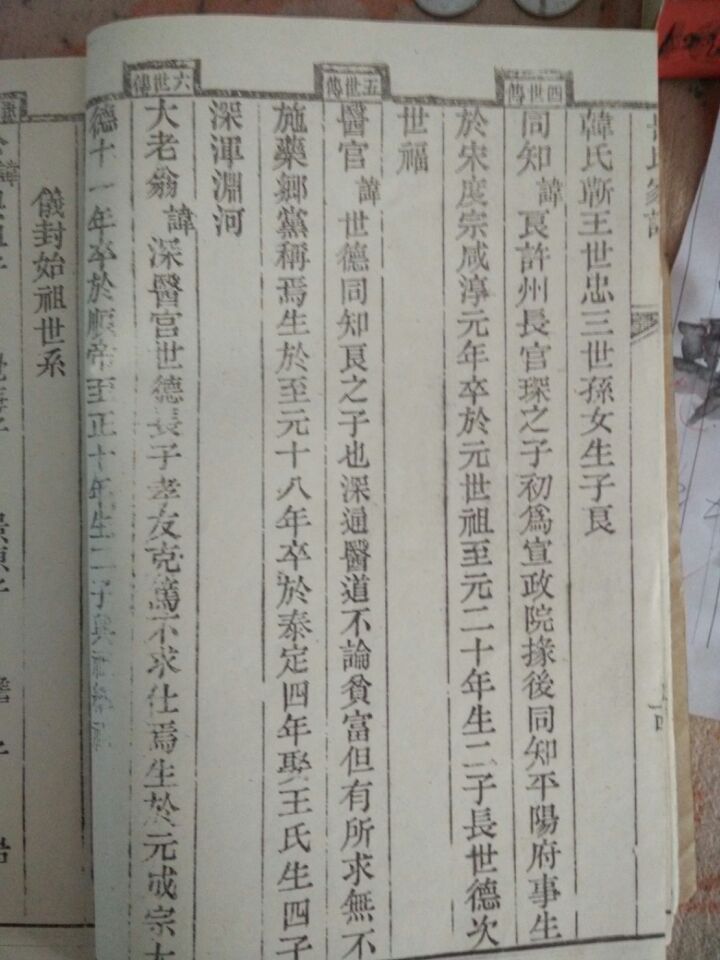 韓氏蘄王世忠三世孫女生子良
四世傳
同知諱良許州長官琛之子初爲宣政院掾後同知平陽府事生
於宋度宗咸淳元年卒於元世祖至元二十年生二子長世德次
世福
五世傳
醫官諱世德同知良之子也深通醫道不論貧富但有所求無不
施藥鄉黨稱焉生於至元十八年卒於泰定四年娶王氏生四子
深渾淵河
六世傳
大老翁諱深醫官世德長子孝友克篤不求仕焉生於元成宗大
德十一年卒於順帝至正十年生二子
儀封始祖世系